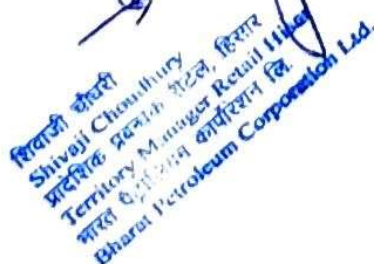 शिवाजी चौधरी
Shivaji Choudhury
प्रादेशिक प्रबन्धक रिटेल, हिसार
Territory Manager Retail Hisar
भारत पेट्रोलियम कार्पोरेशन लि.
Bharat Petroleum Corporation Ltd.